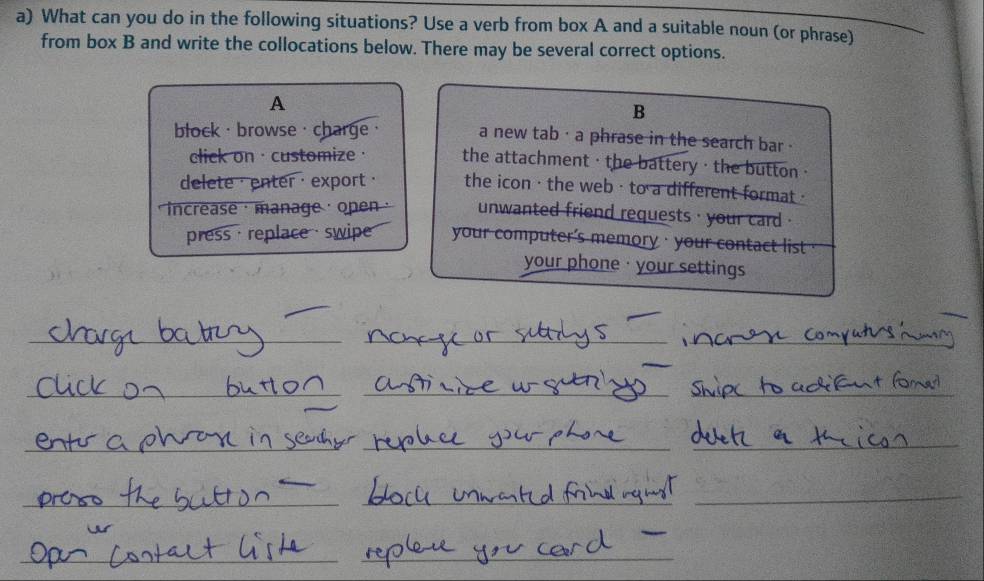 a) What can you do in the following situations? Use a verb from box A and a suitable noun (or phrase)
from box B and write the collocations below. There may be several correct options.
A
block · browse · charge ·
click on · customize ·
delete · enter · export ·
increase · manage · open ·
press · replace · swipe
B
a new tab · a phrase in the search bar ·
the attachment · the battery · the button ·
the icon · the web · to a different format ·
unwanted friend requests · your card ·
your computer's memory · your contact list ·
your phone · your settings
charge battery
or settings
increase computers memory
click on button
settings
swipe to a format
enter a phrase in
replace your phone
delete the icon
press the button
block unwanted friend request
open contact liste
replace your card